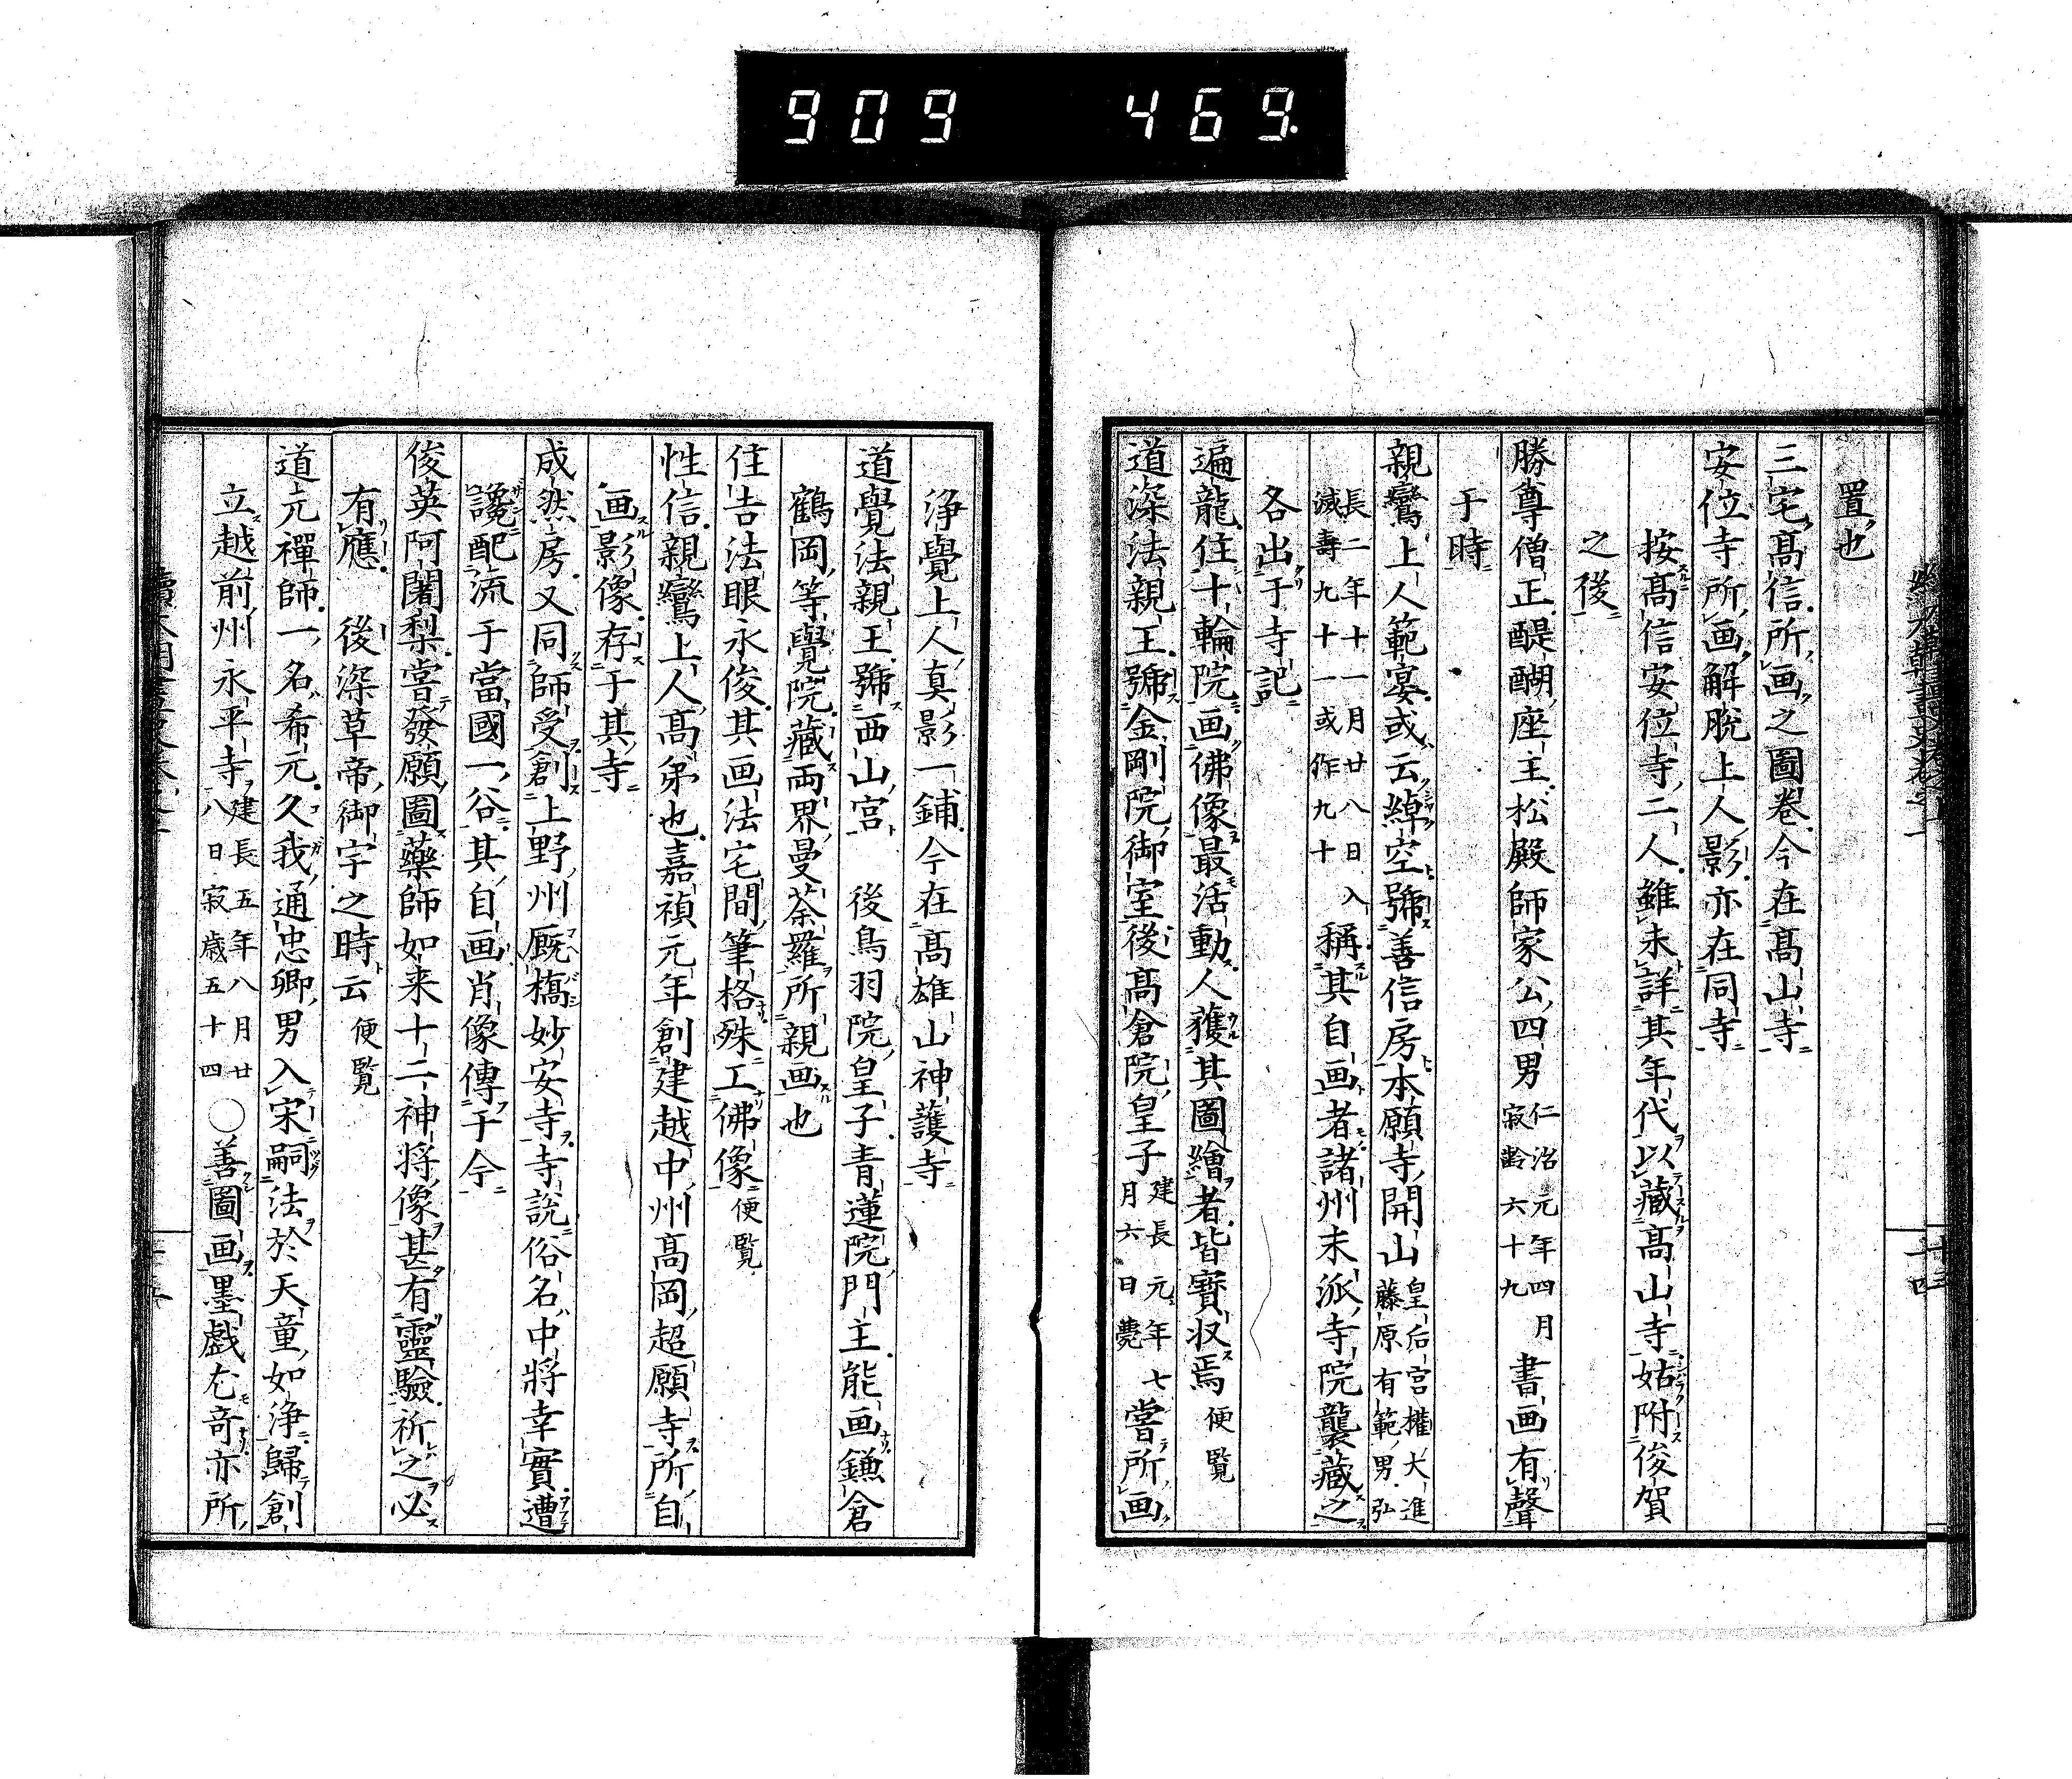 909 469.
置也
三宅高信所画之圖卷今在髙山寺
安位寺所画解脱上人影亦在同寺
按髙信安位寺二人雖未詳其年代以藏髙山寺姑附俊賀
之後
勝尊僧正醍醐座主松殿師家公四男仁治元年四月寂齢六十九書画有聲
于時
親鸞上人範宴或云綽空號善信房本願寺開山皇后宮權大進藤原有範男弘
長二年十一月廿八日入滅壽九十一或作九十稱其自画者諸州末派寺院襲藏之
各出于寺記
遍龍住十輪院画佛像最活動人獲其圖繪者皆寳収焉便覧
道深法親王號金剛院御室後髙倉院皇子建長元年七月六日薨嘗所画
浄覺上人真影一鋪今在髙雄山神護寺
道覺法親王號西山宮 後鳥羽院皇子青蓮院門主能画鎌倉
鶴岡等覺院藏両界曼荼羅所親画也
住吉法眼永俊其画法宅間筆格殊工佛像便覧
性信親鸞上人髙弟也嘉禎元年創建越中州髙岡超願寺所自
画影像存于其寺
成然房又同師受創上野州厩橋妙安寺寺說俗名中將幸實遭
讒配流于當國一谷其自画肖像傳于今
俊英阿闍梨嘗發願圖藥師如来十二神將像甚有靈驗祈之必
有應 後深草帝御宇之時云便覧
道元禪師一名希元久我通忠卿男入宋嗣法於天童如浄歸創
立越前州永平寺建長五年八月廿八日寂歳五十四○善圖画墨戯尤竒亦所